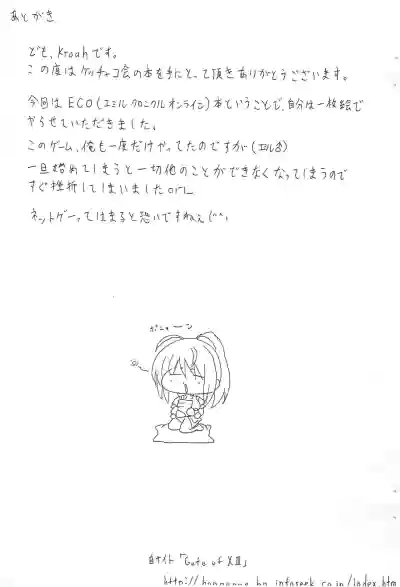 あとがき
ども、Kroahです。
この度はケッチャコ会の本を手にとって頂きありがとうございます。
今回はECO(エミルクロニクルオンライン)本ということで、自分は一枚絵で
やらせていただきました。
このゲーム、俺も一度だけやってたのですが(エミル♂)
一旦始めてしまうと一切他のことができなくなってしまうので
すぐ挫折してしまいましたorz
ネットゲーってはまると恐いですねぇ(^^;
ポニョーン
自サイト「Gate of XIII」
infoseek.co.jp/index.htm